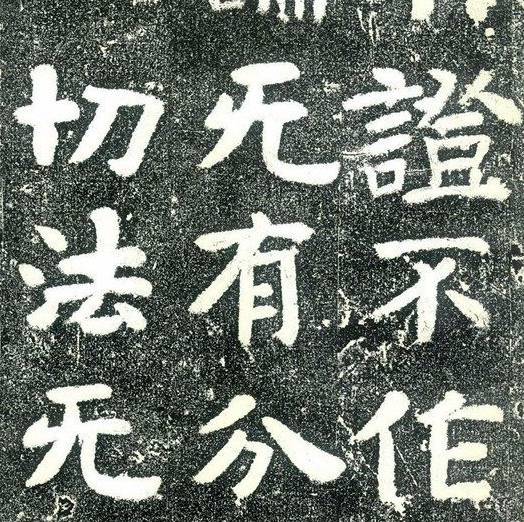 證不作
无有分
切法无